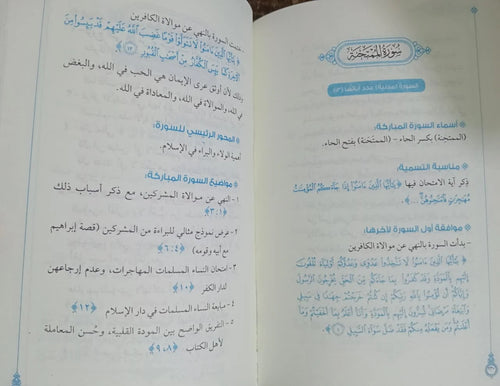 سُورَةُ المُمْتَحنَةِ
السورة (مدنية) عدد آياتها (١٣)
• أسماء السورة المباركة:
(الممتحِنة) بكسر الحاء - (الممتَحَنة) بفتح الحاء.
• مناسبة التسمية:
ذكر آية الامتحان فيها ﴿يَٰٓأَيُّهَا ٱلَّذِينَ ءَامَنُوٓاْ إِذَا جَآءَكُمُ ٱلۡمُؤۡمِنَٰتُ
مُهَٰجِرَٰتٖ فَٱمۡتَحِنُوهُنَّۖ ...﴾
• موافقة أول السورة لآخرها:
- بدأت السورة بالنهي عن موالاة الكافرين
﴿يَٰٓأَيُّهَا ٱلَّذِينَ ءَامَنُواْ لَا تَتَّخِذُواْ عَدُوِّي وَعَدُوَّكُمۡ أَوۡلِيَآءَ تُلۡقُونَ
إِلَيۡهِم بِٱلۡمَوَدَّةِ وَقَدۡ كَفَرُواْ بِمَا جَآءَكُم مِّنَ ٱلۡحَقِّ يُخۡرِجُونَ ٱلرَّسُولَ وَإِيَّاكُمۡ
أَن تُؤۡمِنُواْ بِٱللَّهِ رَبِّكُمۡ إِن كُنتُمۡ خَرَجۡتُمۡ جِهَٰدٗا فِي سَبِيلِي
وَٱبۡتِغَآءَ مَرۡضَاتِيۚ تُسِرُّونَ إِلَيۡهِم بِٱلۡمَوَدَّةِ وَأَنَا۠ أَعۡلَمُ بِمَآ أَخۡفَيۡتُمۡ وَمَآ
أَعۡلَنتُمۡۚ وَمَن يَفۡعَلۡهُ مِنكُمۡ فَقَدۡ ضَلَّ سَوَآءَ ٱلسَّبِيلِ ﴿١﴾﴾
- ختمت السورة بالنهي عن موالاة الكافرين
﴿يَٰٓأَيُّهَا ٱلَّذِينَ ءَامَنُواْ لَا تَتَوَلَّوۡاْ قَوۡمًا غَضِبَ ٱللَّهُ عَلَيۡهِمۡ قَدۡ يَئِسُواْ مِنَ
ٱلۡأٓخِرَةِ كَمَا يَئِسَ ٱلۡكُفَّارُ مِنۡ أَصۡحَٰبِ ٱلۡقُبُورِ ﴿١٣﴾﴾
وذلك لأن أوثق عرى الإيمان هي الحب في الله، والبغض
في الله، والموالاة في الله، والمعاداة في الله.
• المحور الرئيسي للسورة:
أهمية الولاء والبراء في الإسلام.
• مواضيع السورة المباركة:
١- النهي عن موالاة المشركين، مع ذكر أسباب ذلك
﴿١:٣﴾
٢- عرض نموذج مثالي للبراءة من المشركين (قصة إبراهيم
مع أبيه وقومه) ﴿٤:٦﴾
٣- امتحان النساء المسلمات المهاجرات، وعدم إرجاعهن
لدار الكفر ﴿١٠﴾
٤- مبايعة النساء المسلمات في دار الإسلام ﴿١٢﴾
٥- التفريق الواضح بين المودة القلبية، وحُسن المعاملة
لأهل الكتاب ﴿٨، ٩﴾